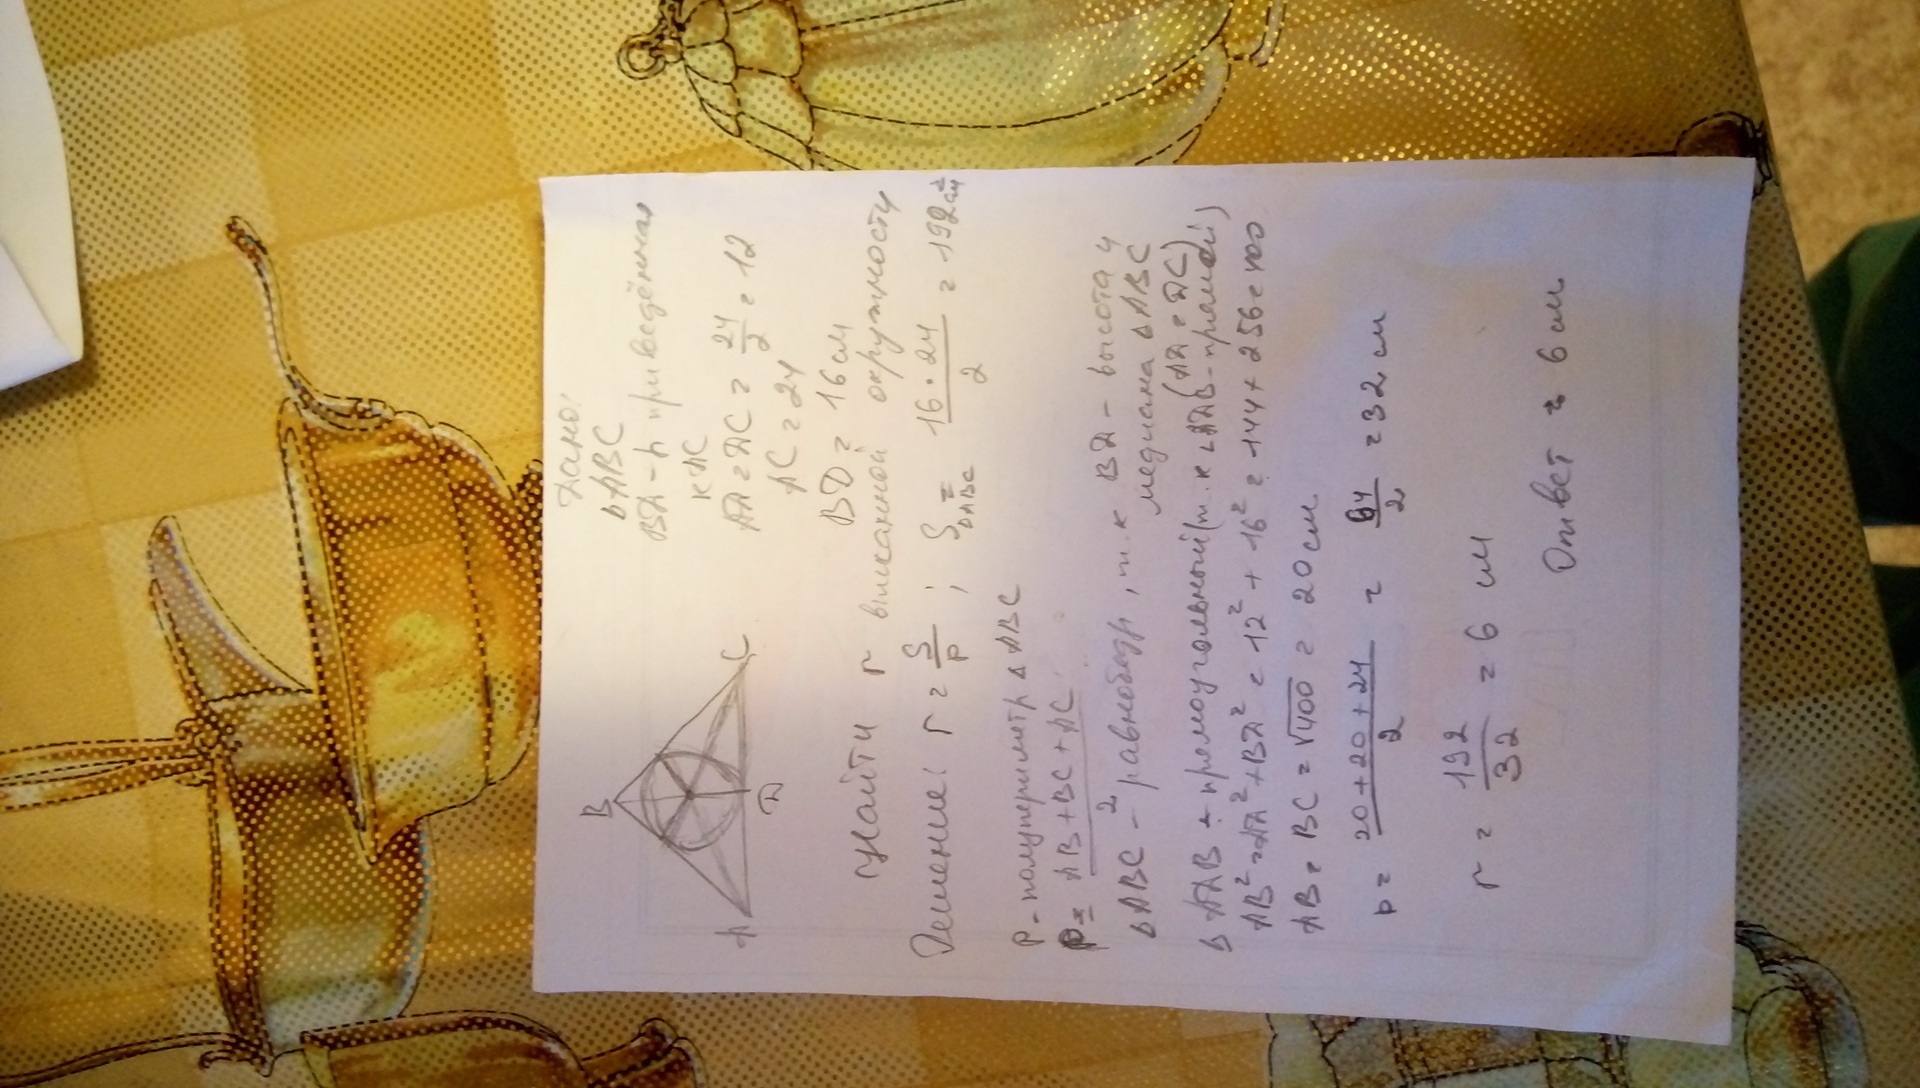 B
A
C
D
Дано:
ΔABC
BD - h приведённая
к AC
AD = DC = 24/2 = 12
AC = 24
BD = 16 см
Найти r вписанной окружности
Решение: r = S/p ; S ΔABC = 16·24/2 = 192 см²
P - полупериметр Δ ABC
P = AB + BC + AC / 2
Δ ABC - равнобедр, т.к BD - высота и
медиана Δ ABC
(AD = DC)
Δ ADB - прямоугольный (т.к ∠ADB - прямой)
AB² = AD² + BD² = 12² + 16² = 144 + 256 = 400
AB = BC = √400 = 20 см
p = 20 + 20 + 24 / 2 = 64/2 = 32 см
r = 192/32 = 6 см
Ответ = 6 см